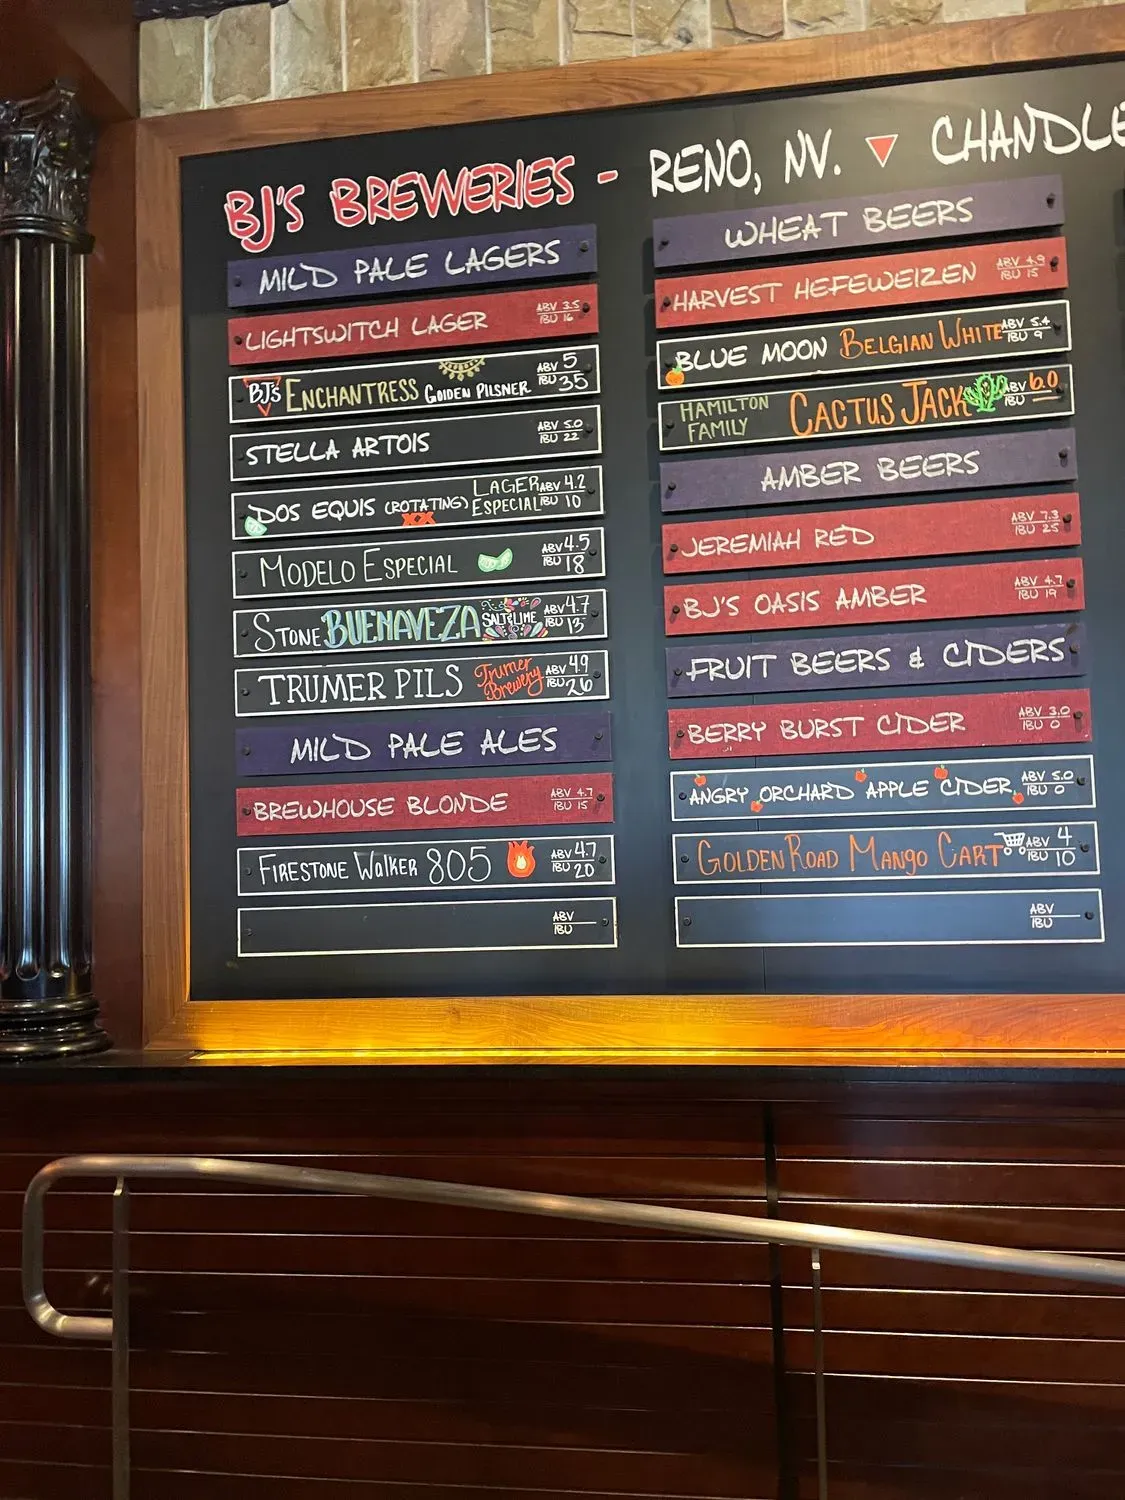 BJ'S BREWERIES - RENO, NV. CHANDLE
MILD PALE LAGERS
LIGHTSWITCH LAGER ABV 3.5 IBU 16
BJ's ENCHANTRESS GOLDEN PILSNER ABV 5 IBU 35
STELLA ARTOIS ABV 5.0 IBU 22
DOS EQUIS (ROTATING) XX LAGER ESPECIAL ABV 4.2 IBU 10
MODELO ESPECIAL ABV 4.5 IBU 18
STONE BUENAVEZA SALT & LIME ABV 4.7 IBU 13
TRUMER PILS Trumer Brewery ABV 4.9 IBU 26
MILD PALE ALES
BREWHOUSE BLONDE ABV 4.7 IBU 15
FIRESTONE WALKER 805 ABV 4.7 IBU 20
ABV IBU
WHEAT BEERS
HARVEST HEFEWEIZEN ABV 4.9 IBU 15
BLUE MOON BELGIAN WHITE ABV 5.4 IBU 9
HAMILTON FAMILY CACTUS JACK ABV 6.0
AMBER BEERS
JEREMIAH RED ABV 7.3 IBU 25
BJ'S OASIS AMBER ABV 4.7 IBU 19
FRUIT BEERS & CIDERS
BERRY BURST CIDER ABV 3.0 IBU 0
ANGRY ORCHARD APPLE CIDER ABV 5.0 IBU 0
GOLDEN ROAD MANGO CART ABV 4 IBU 10
ABV IBU